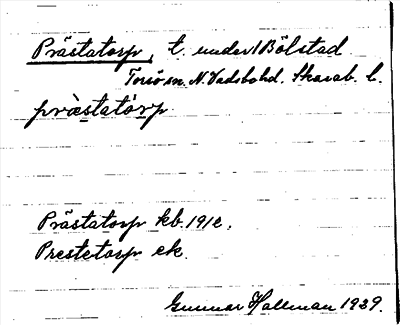 Prästatorp, t. under Bölstad
Torsö sn. N. Vadsbohd. Skarab. l.
præ̀statórp
Prästatorp kb. 1912.
Prestetorp ek.
Gunnar Hallman 1939.